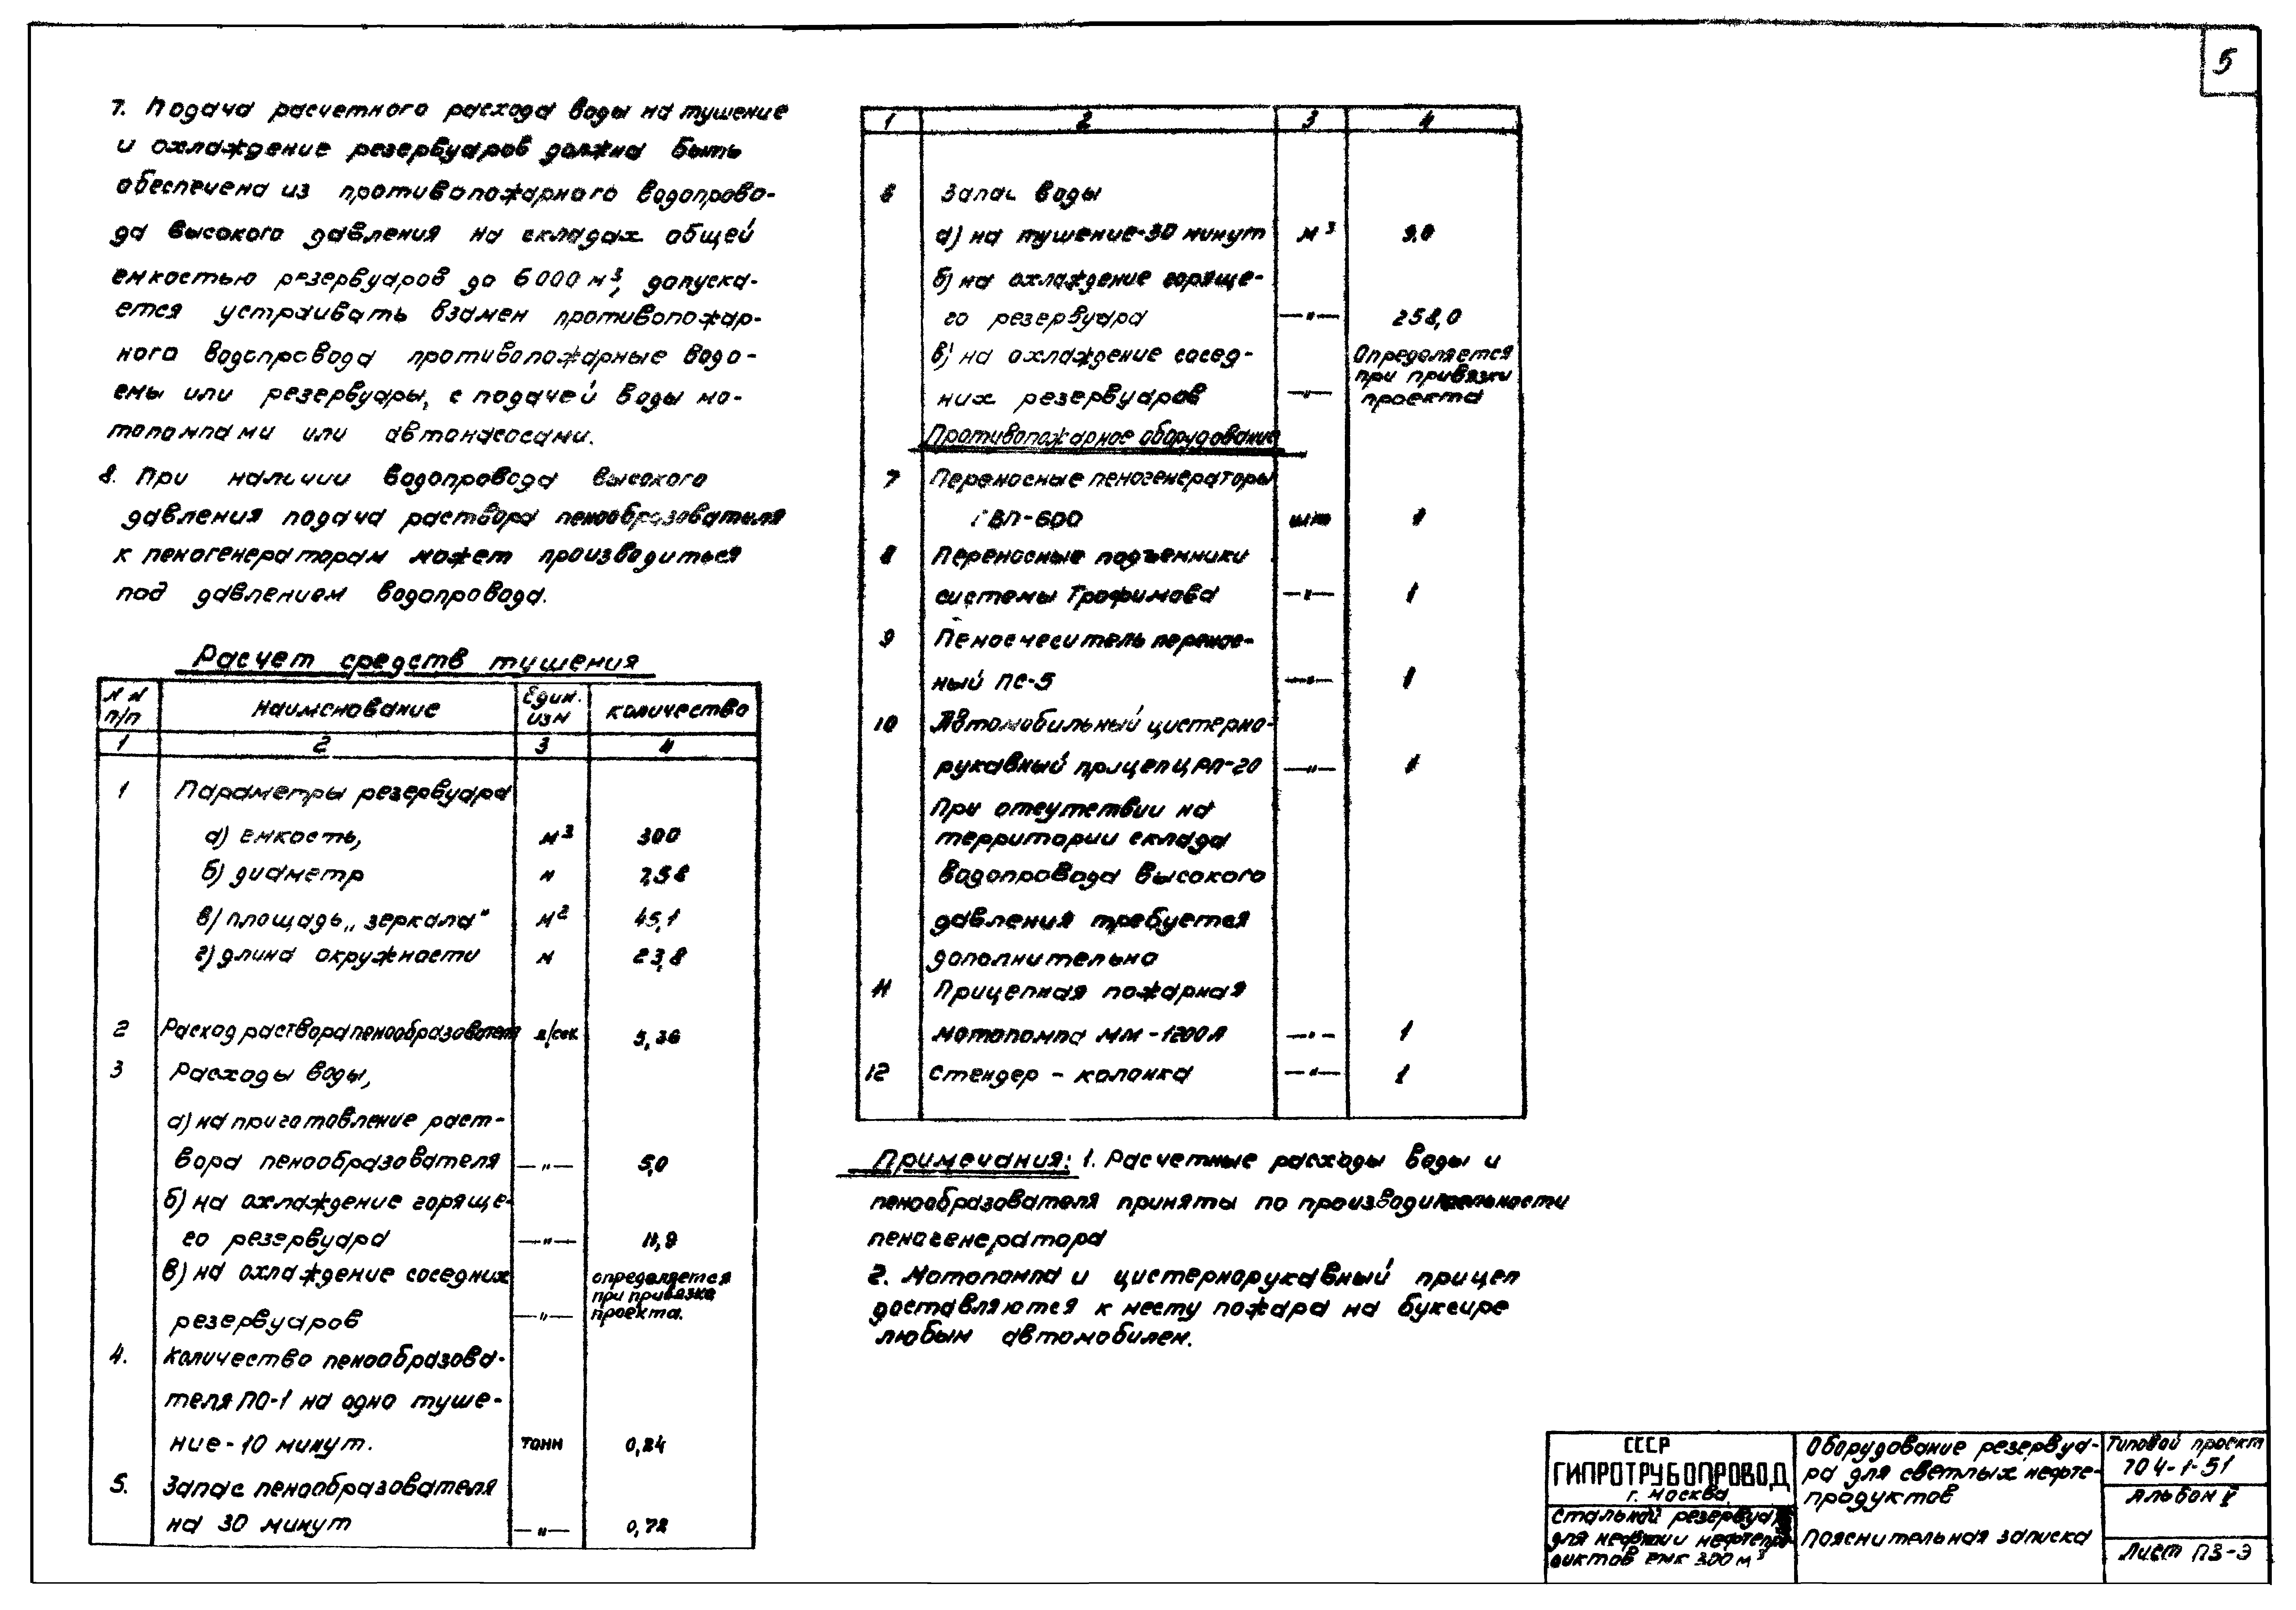 5
7. Подача расчетного расхода воды на тушение
и охлаждение резервуаров должна быть
обеспечена из противопожарного водопрово-
да высокого давления на складах общей
емкостью резервуаров до 6000 м³, допуска-
ется устраивать взамен противопожар-
ного водопровода противопожарные водо-
емы или резервуары, с подачей воды мо-
топомпами или автонасосами.
8. При наличии водопровода высокого
давления подача раствора пенообразователя
к пеногенераторам может производиться
под давлением водопровода.
Расчет средств тушения
№ № п/п Наименование Един. изм количество
1 2 3 4
1 Параметры резервуара
а) емкость, м³ 300
б) диаметр м 7,58
в) площадь „зеркала" м² 45,1
г) длина окружности м 23,8
2 Расход раствора пенообразователя л/сек 5,36
3 Расходы воды,
а) на приготовление раст-
вора пенообразователя —"— 5,0
б) на охлаждение горяще-
го резервуара —"— 11,9
в) на охлаждение соседних
резервуаров —"— определяется при привязке проекта.
4. Количество пенообразова-
теля ПО-1 на одно туше-
ние - 10 минут. тонн 0,24
5. Запас пенообразователя
на 30 минут —"— 0,72
1 2 3 4
6 Запас воды
а) на тушение-30 минут м³ 9,0
б) на охлаждение горяще-
го резервуара —"— 258,0
в) на охлаждение сосед-
них резервуаров —"— Определяется при привязки проекта
Противопожарное оборудование
7 Переносные пеногенераторы
ГВП-600 шт 1
8 Переносные подъемники
системы Трофимова —"— 1
9 Пеносчеситель перенос-
ный ПС-5 —"— 1
10 Автомобильный цистерно-
рукавный прицеп ЦРП-20 —"— 1
При отсутствии на
территории склада
водопровода высокого
давления требуется
дополнительно
11 Прицепная пожарная
мотопомпа ММ-1200А —"— 1
12 Стендер - колонка —"— 1
Примечания: 1. Расчетные расходы воды и
пенообразователя приняты по производительности
пеногенератора
2. Мотопомпа и цистернорукавный прицеп
доставляются к месту пожара на буксире
любым автомобилем.
СССР
ГИПРОТРУБОПРОВОД
г. Москва
Стальной резервуар
для нефти и нефтепро-
дуктов емк 300 м³
Оборудование резервуа-
ра для светлых нефте-
продуктов
Пояснительная записка
Типовой проект
704-1-51
Альбом V
Лист ПЗ-Э